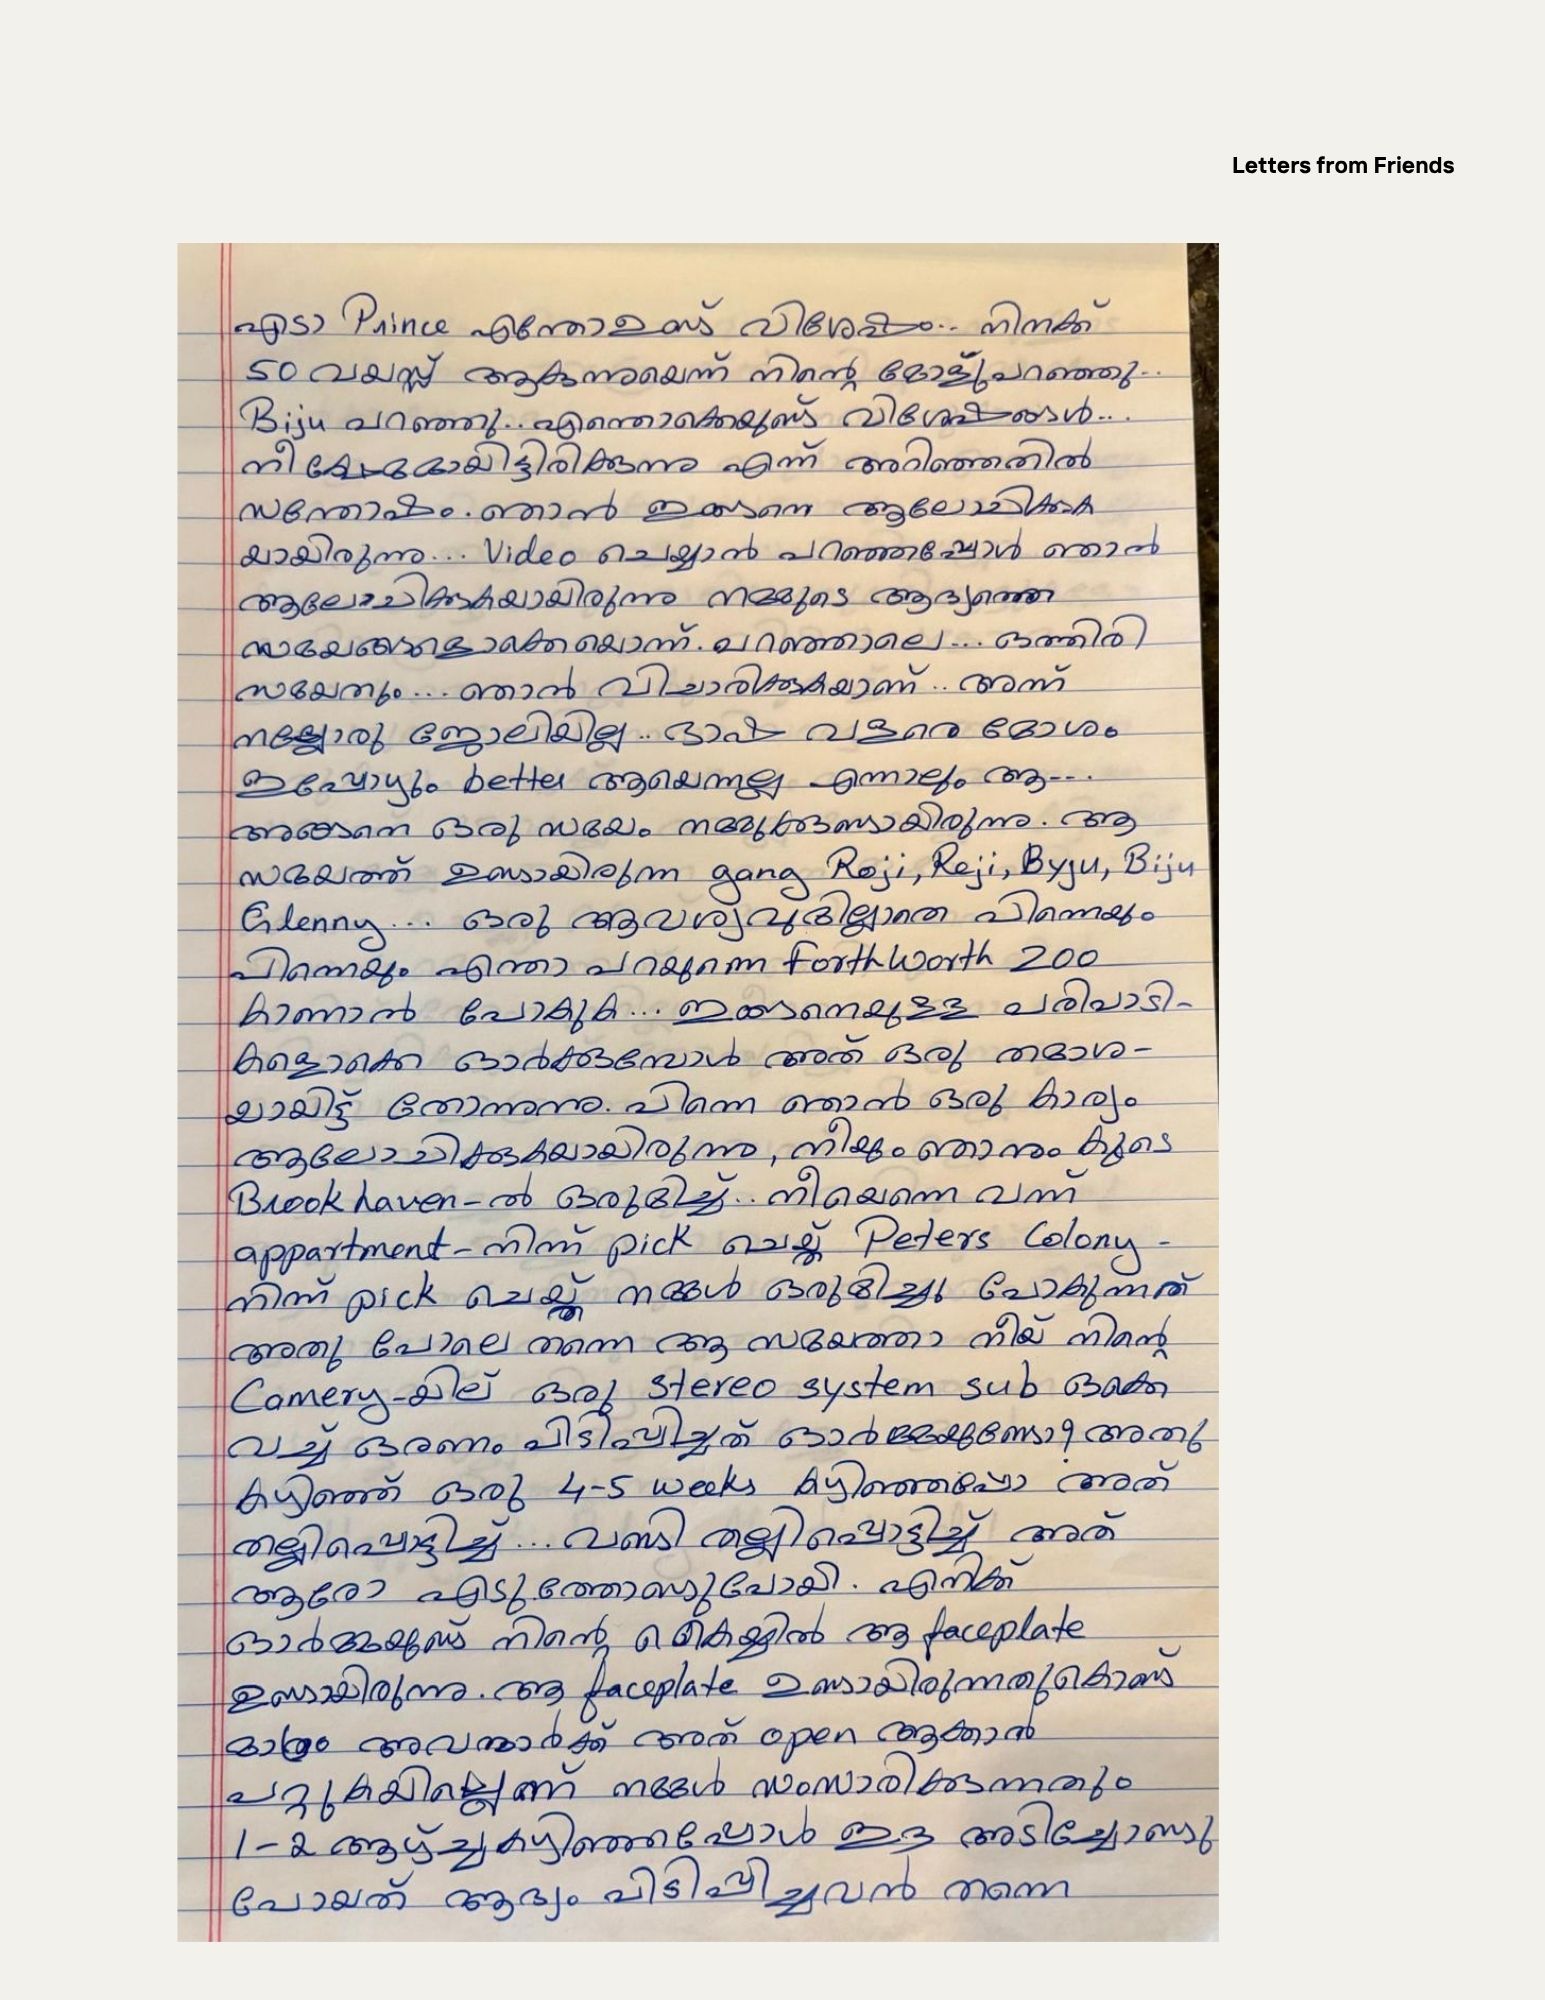 Letters from Friends
എടാ Prince എന്തോഉണ്ട് വിശേഷം.. നിനക്ക്
50 വയസ്സ് ആകുന്നുയെന്ന് നിന്റെ മോള് പറഞ്ഞു..
Biju പറഞ്ഞു.. എന്തൊക്കെയുണ്ട് വിശേഷങ്ങൾ...
നീ ക്ഷേമമായിട്ടിരിക്കുന്നു എന്ന് അറിഞ്ഞതിൽ
സന്തോഷം. ഞാൻ ഇങ്ങനെ ആലോചിക്കുക
യായിരുന്നു... Video ചെയ്യാൻ പറഞ്ഞപ്പോൾ ഞാൻ
ആലോചിക്കുകയായിരുന്നു നമ്മുടെ ആദ്യത്തെ
സമയങ്ങളൊക്കെയൊന്ന്. പറഞ്ഞാലെ... ഒത്തിരി
സമയതും... ഞാൻ വിചാരിക്കുകയാണ്.. അന്ന്
നല്ലോരു ജോലിയില്ല.. ഭാഷ വളരെ മോശം
ഇപ്പോഴും better ആയെന്നല്ല എന്നാലും ആ---
അങ്ങനെ ഒരു സമയം നമ്മുക്കുണ്ടായിരുന്നു. ആ
സമയത്ത് ഉണ്ടായിരുന്ന gang Roji, Reji, Byju, Biju
Glenny... ഒരു ആവശ്യവുമില്ലാതെ പിന്നെയും
പിന്നെയും എന്താ പറയുന്നെ ForthWorth 200
കാണാൻ പോകുക... ഇങ്ങനെയുള്ള പരിപാടി-
കളൊക്കെ ഓർക്കുമ്പോൾ അത് ഒരു തമാശ-
യായിട്ട് തോന്നുന്നു. പിന്നെ ഞാൻ ഒരു കാര്യം
ആലോചിക്കുകയായിരുന്നു, നീയും ഞാനും കൂടെ
Brookhaven-ൽ ഒരുമിച്ച്.. നീയെന്നെ വന്ന്
appartment-നിന്ന് pick ചെയ്ത് Peters Colony -
നിന്ന് pick ചെയ്ത് നമ്മൾ ഒരുമിച്ചു പോകുന്നത്
അതു പോലെ തന്നെ ആ സമയത്താ നീയ് നിന്റെ
Camery-യില് ഒരു stereo system sub ഒക്കെ
വച്ച് ഒരണം പിടിപ്പിച്ചത് ഓർമ്മയുണ്ടോ? അതു
കഴിഞ്ഞ് ഒരു 4-5 weeks കഴിഞ്ഞപ്പോ അത്
തല്ലിപ്പൊട്ടിച്ച്... വണ്ടി തല്ലിപ്പൊട്ടിച്ച് അത്
ആരോ എടുത്തോണ്ടുപോയി. എനിക്ക്
ഓർമ്മയുണ്ട് നിന്റെ കൈയ്യിൽ ആ faceplate
ഉണ്ടായിരുന്നു. ആ faceplate ഉണ്ടായിരുന്നതുകൊണ്ട്
മാത്രം അവന്മാർക്ക് അത് open ആക്കാൻ
പറ്റുകയില്ലെന്ന് നമ്മൾ സംസാരിക്കുന്നതും
1-2 ആഴ്ച്ച കഴിഞ്ഞപ്പോൾ ഇത് അടിച്ചോണ്ടു
പോയത് ആദ്യം പിടിപ്പിച്ചവൻ തന്നെ